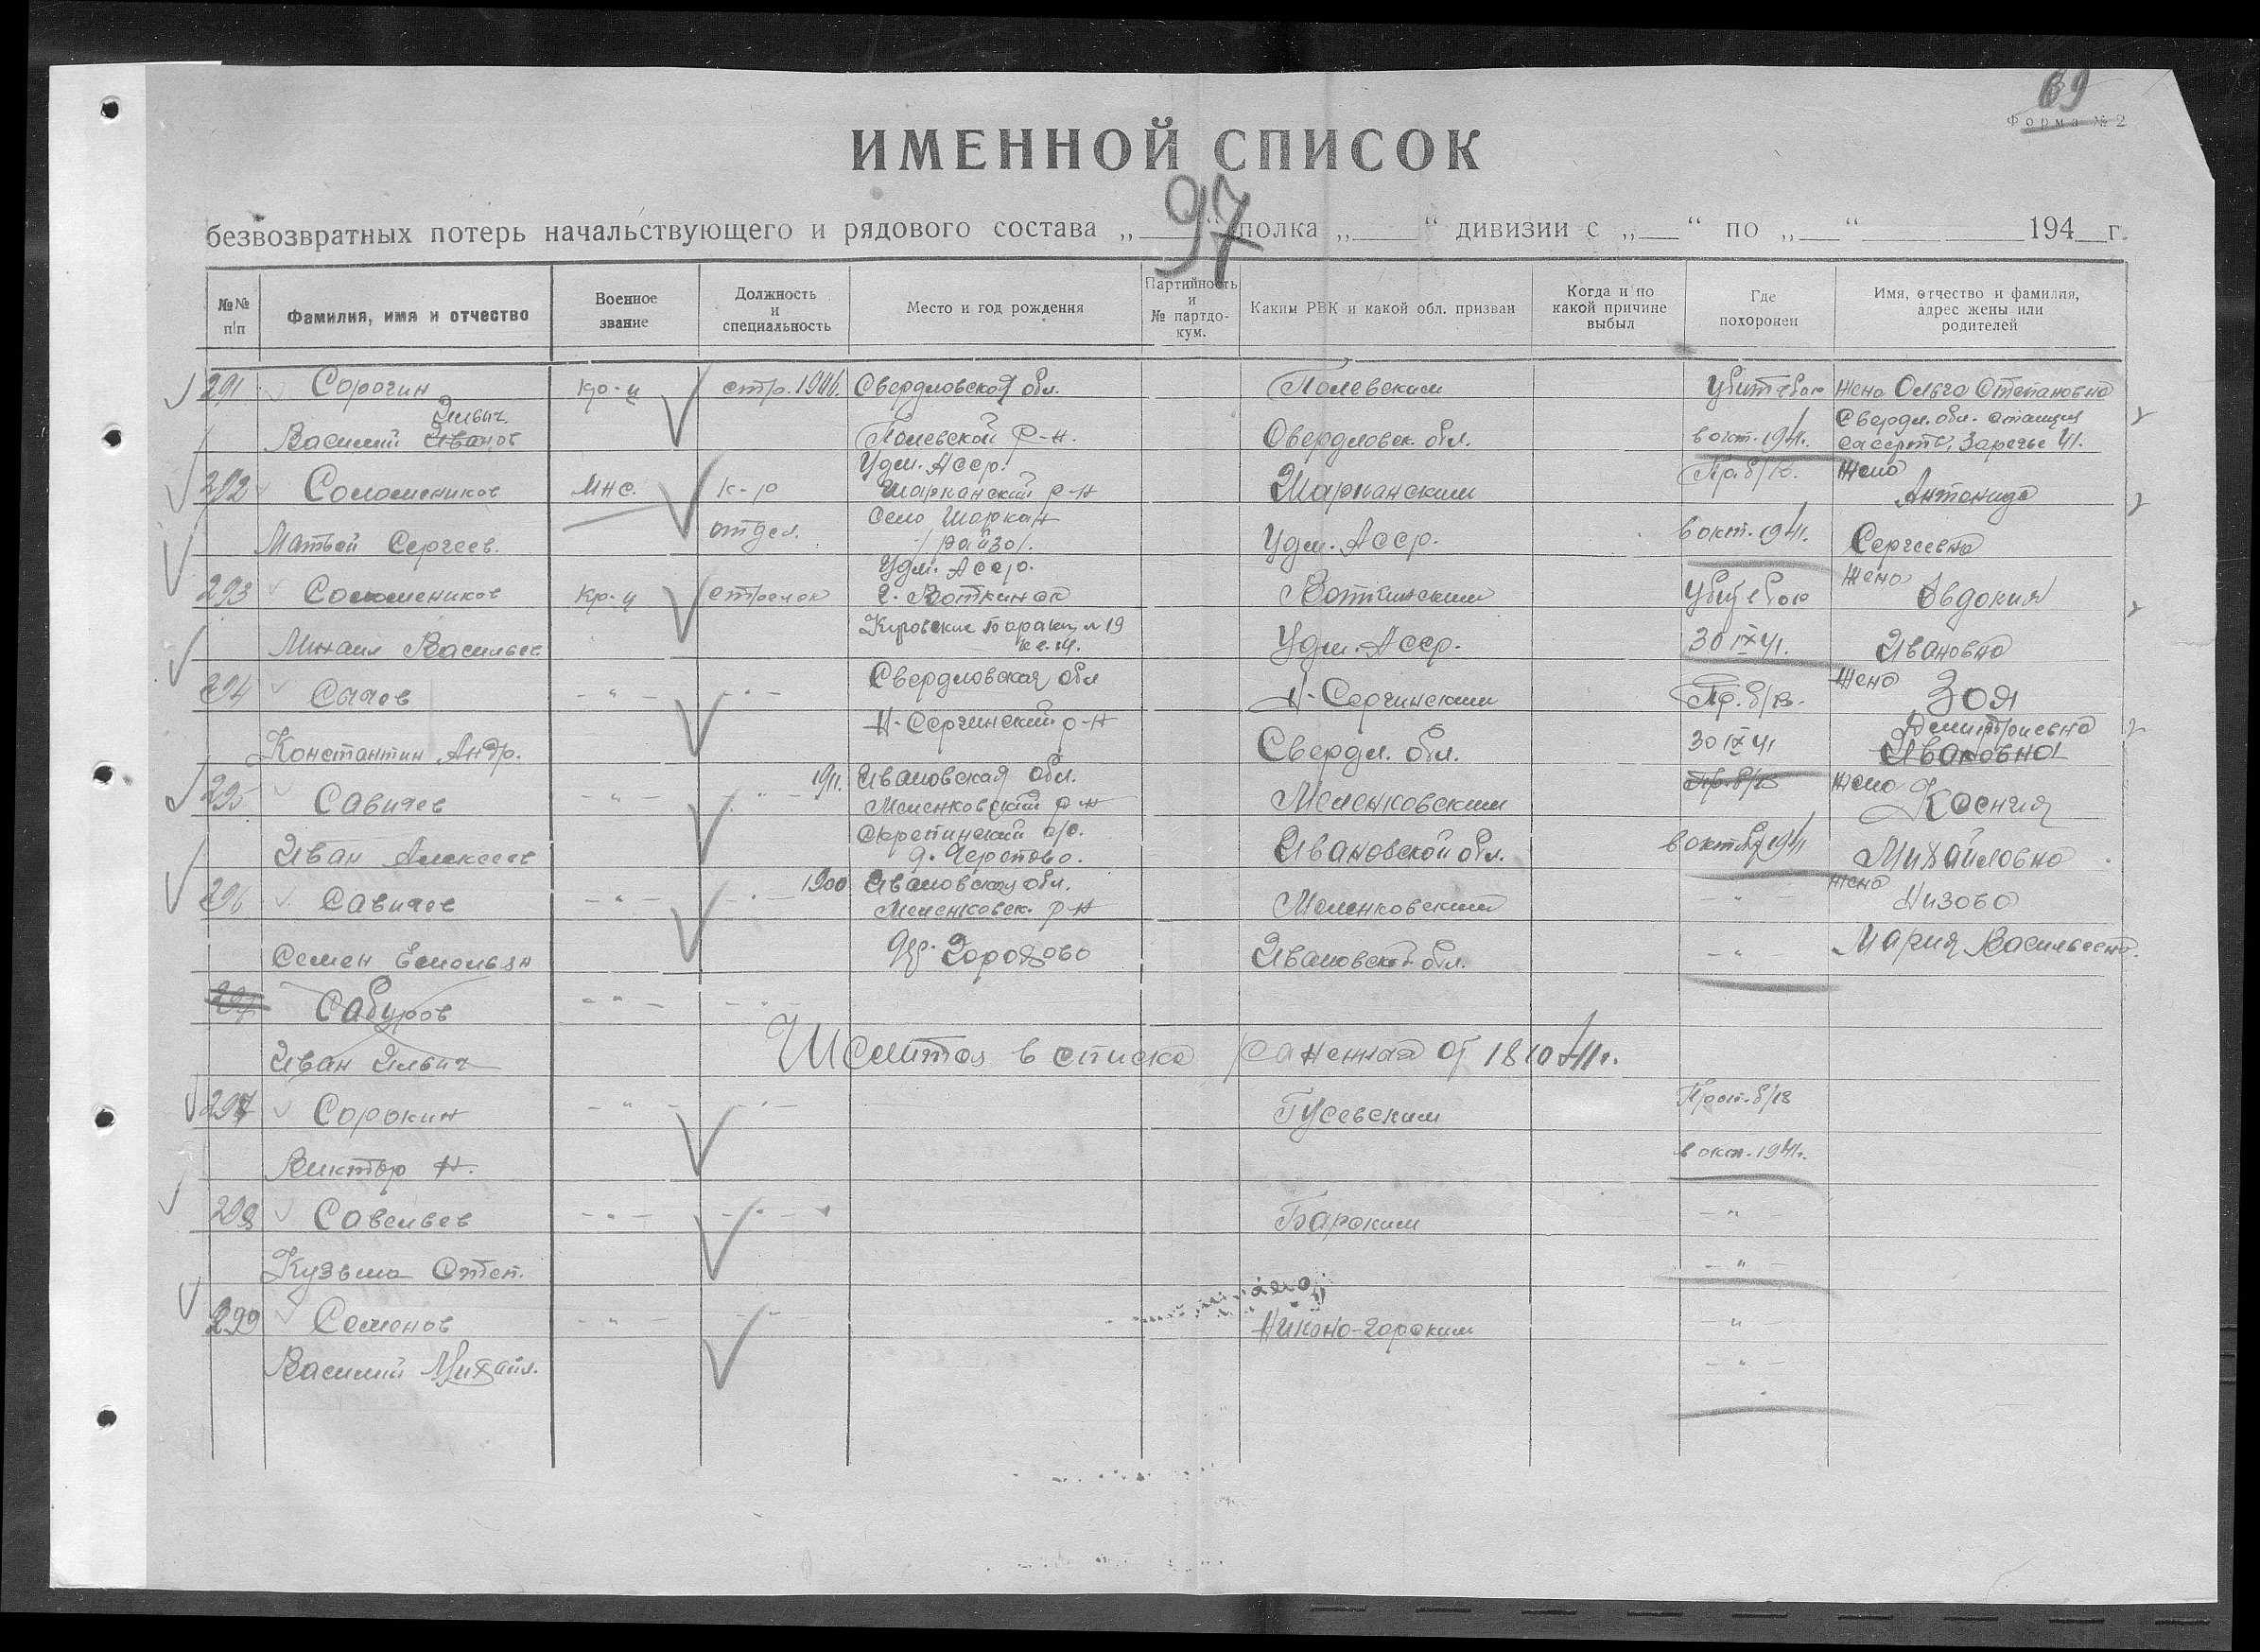 69
Форма № 2
ИМЕННОЙ СПИСОК
97
безвозвратных потерь начальствующего и рядового состава „ “ полка „ “ дивизии с „ “ по „ “ 194 г.
№№ п/п
Фамилия, имя и отчество
Военное звание
Должность и специальность
Место и год рождения
Партийность и № партдокум.
Каким РВК и какой обл. призван
Когда и по какой причине выбыл
Где похоронен
Имя, отчество и фамилия, адрес жены или родителей
291 Сорогин кр-ц стр. 1906. Свердловской обл. Полевским Убит в бою жена Ольга Степановна
Василий Иванов Ильич. Полевской р-н. Свердловск. обл. в окт. 1941. Свердл. обл. станция
Сасерть, Заречье 41.
292 Соломеников мнс. к-р Удм. Асср. Шарканский р-н Шарканским Пр. б/в. жена Антонида
Матвей Сергеев. отдел. Село Шаркан /райзо/. Удм. Асср. в окт. 1941. Сергеевна
293 Соломеников кр-ц стрелок Удм. Асср. г. Воткинск Воткинским Убит в бою жена Евдокия
Михаил Васильев Кировские бараки, № 19 Удм. Асср. 30 IX 41. Ивановна
294 Сычев - " - - " - Свердловская обл Н-Сергинским Пр. б/в. жена Зоя
Константин Андр. Н-Сергинский р-н Свердл. обл. 30 IX 41 Дмитриевна
Ивановна
295 Савичев - " - - " - 1911. Ивановская обл. Меленковский р-н Меленковским Пр. б/в жена Ксения
Иван Алексеев с/с. Ивановской обл. в октябр 1941 Михайловна
296 Савичев - " - - " - 1900 Ивановская обл. Меленковск. р-н Меленковским - " - жена Низово
Семен Емельян Ивановской обл. - " - Мария Васильевна.
297 Сабуров - " - - " -
Иван Ильич в списке от 18 10 41 г.
297 Сорокин - " - - " - Гусевским Проп. б/в
Виктор Н. в окт. 1941г.
298 Савельев - " - - " - Барским - " -
Кузьма Степ. - " -
299 Семенов - " - - " - - " -
Василий Михайл. - " -